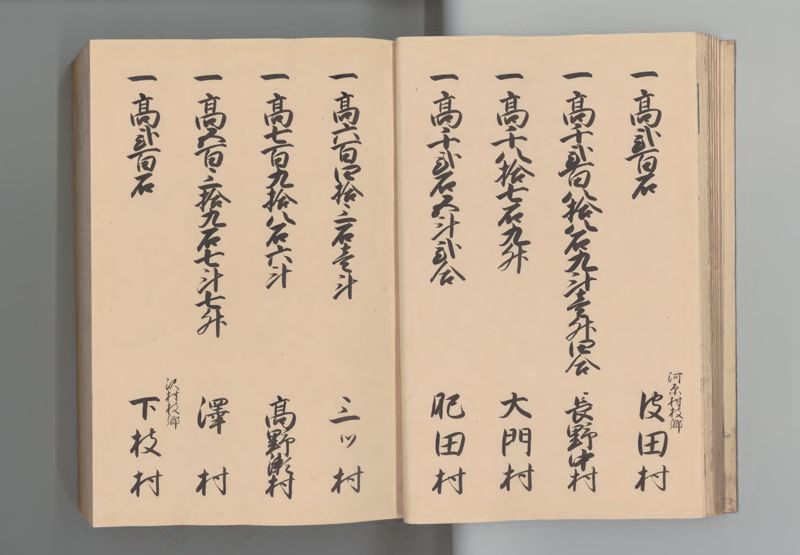 一高弐百石 河原村枝郷 彼田村
一高千弐百八拾八石九斗壱升四合 長野中村
一高千八拾七石九升 大門村
一高千弐石五斗弐合 肥田村
一高六百四拾三石壱斗 三ツ村
一高七百九拾八石六斗 高野瀬村
一高五百三拾九石七斗七升 澤村
一高弐百石 沢村枝郷 下枝村